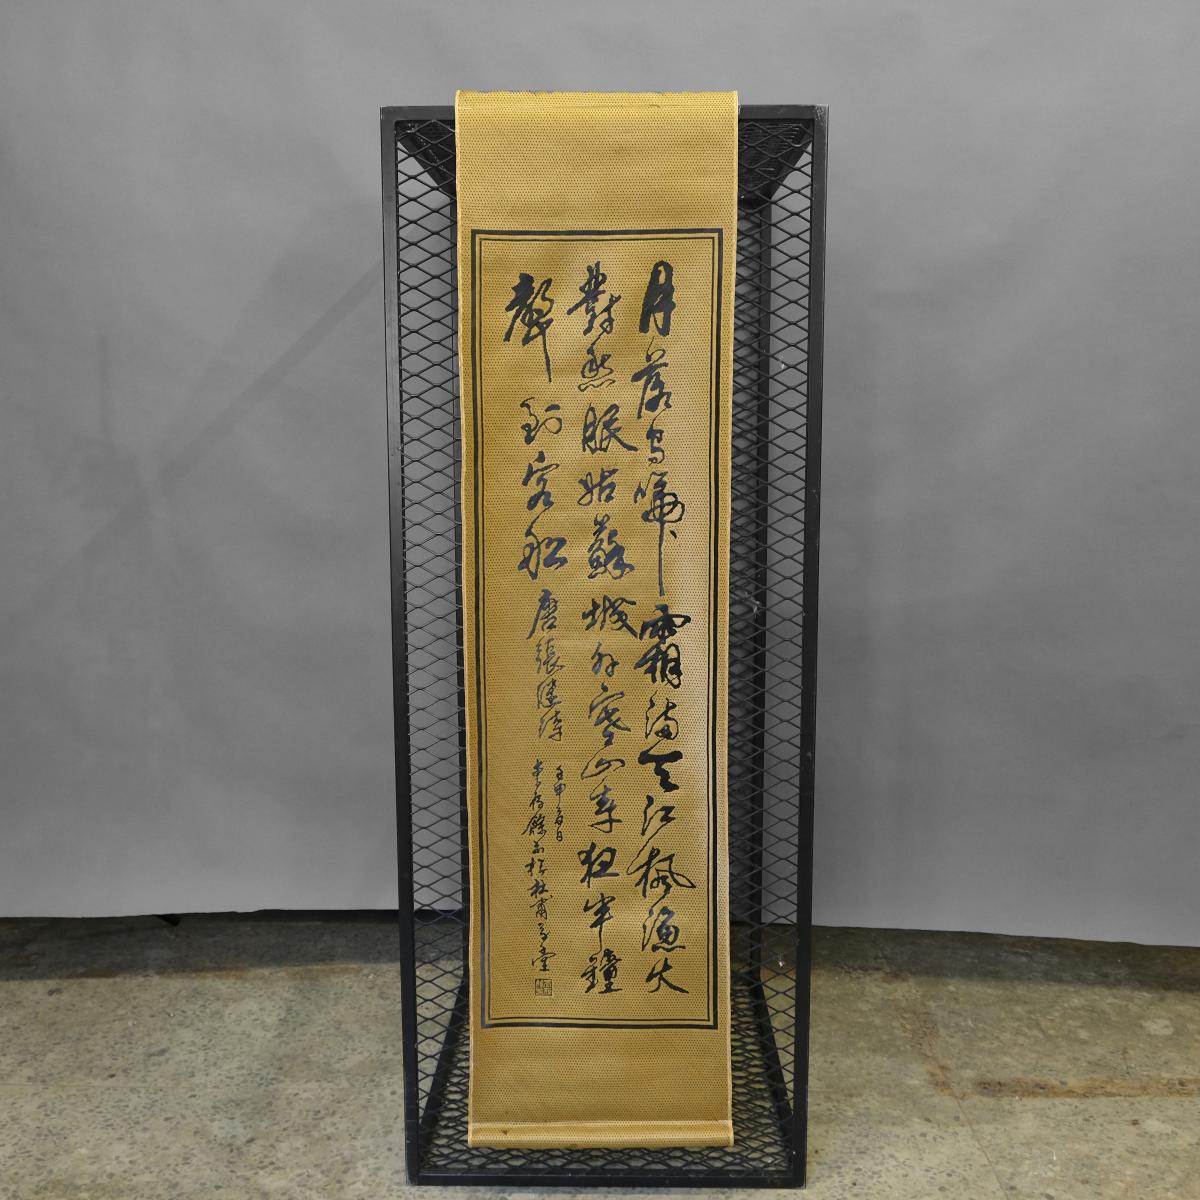 月落烏啼霜滿天江楓漁火
對愁眠姑蘇城外寒山寺夜半鐘
聲到客船 唐張繼詩
壬申日
杜甫草堂